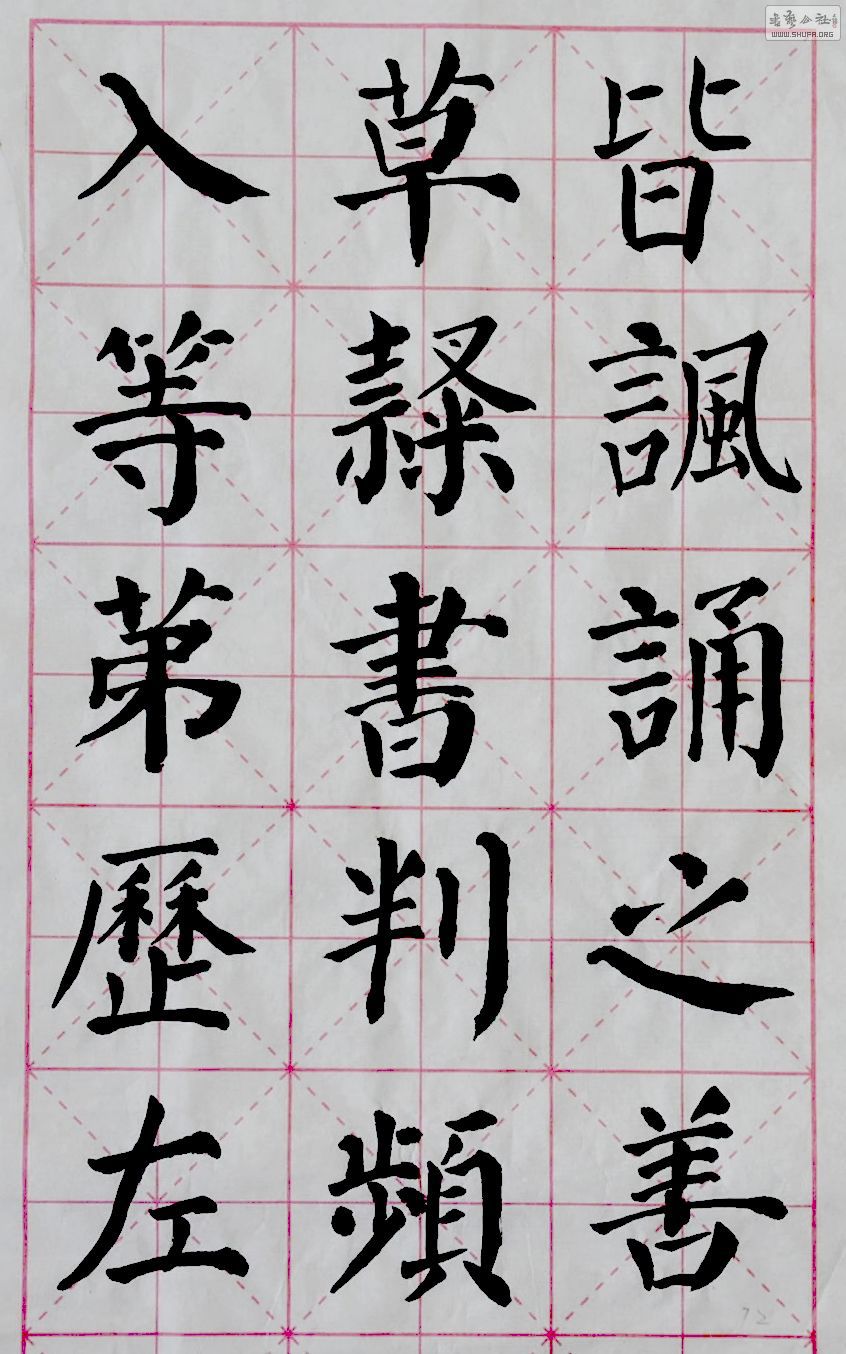 皆諷誦之善
草隸書判頻
入等苐歷左
书艺公社
WWW.SHUFA.ORG
72